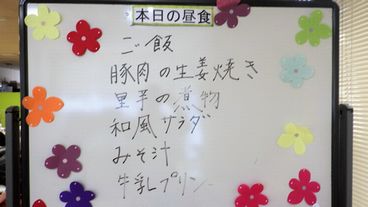 本日の昼食
ご飯
豚肉の生姜焼き
里芋の煮物
和風サラダ
みそ汁
牛乳プリン